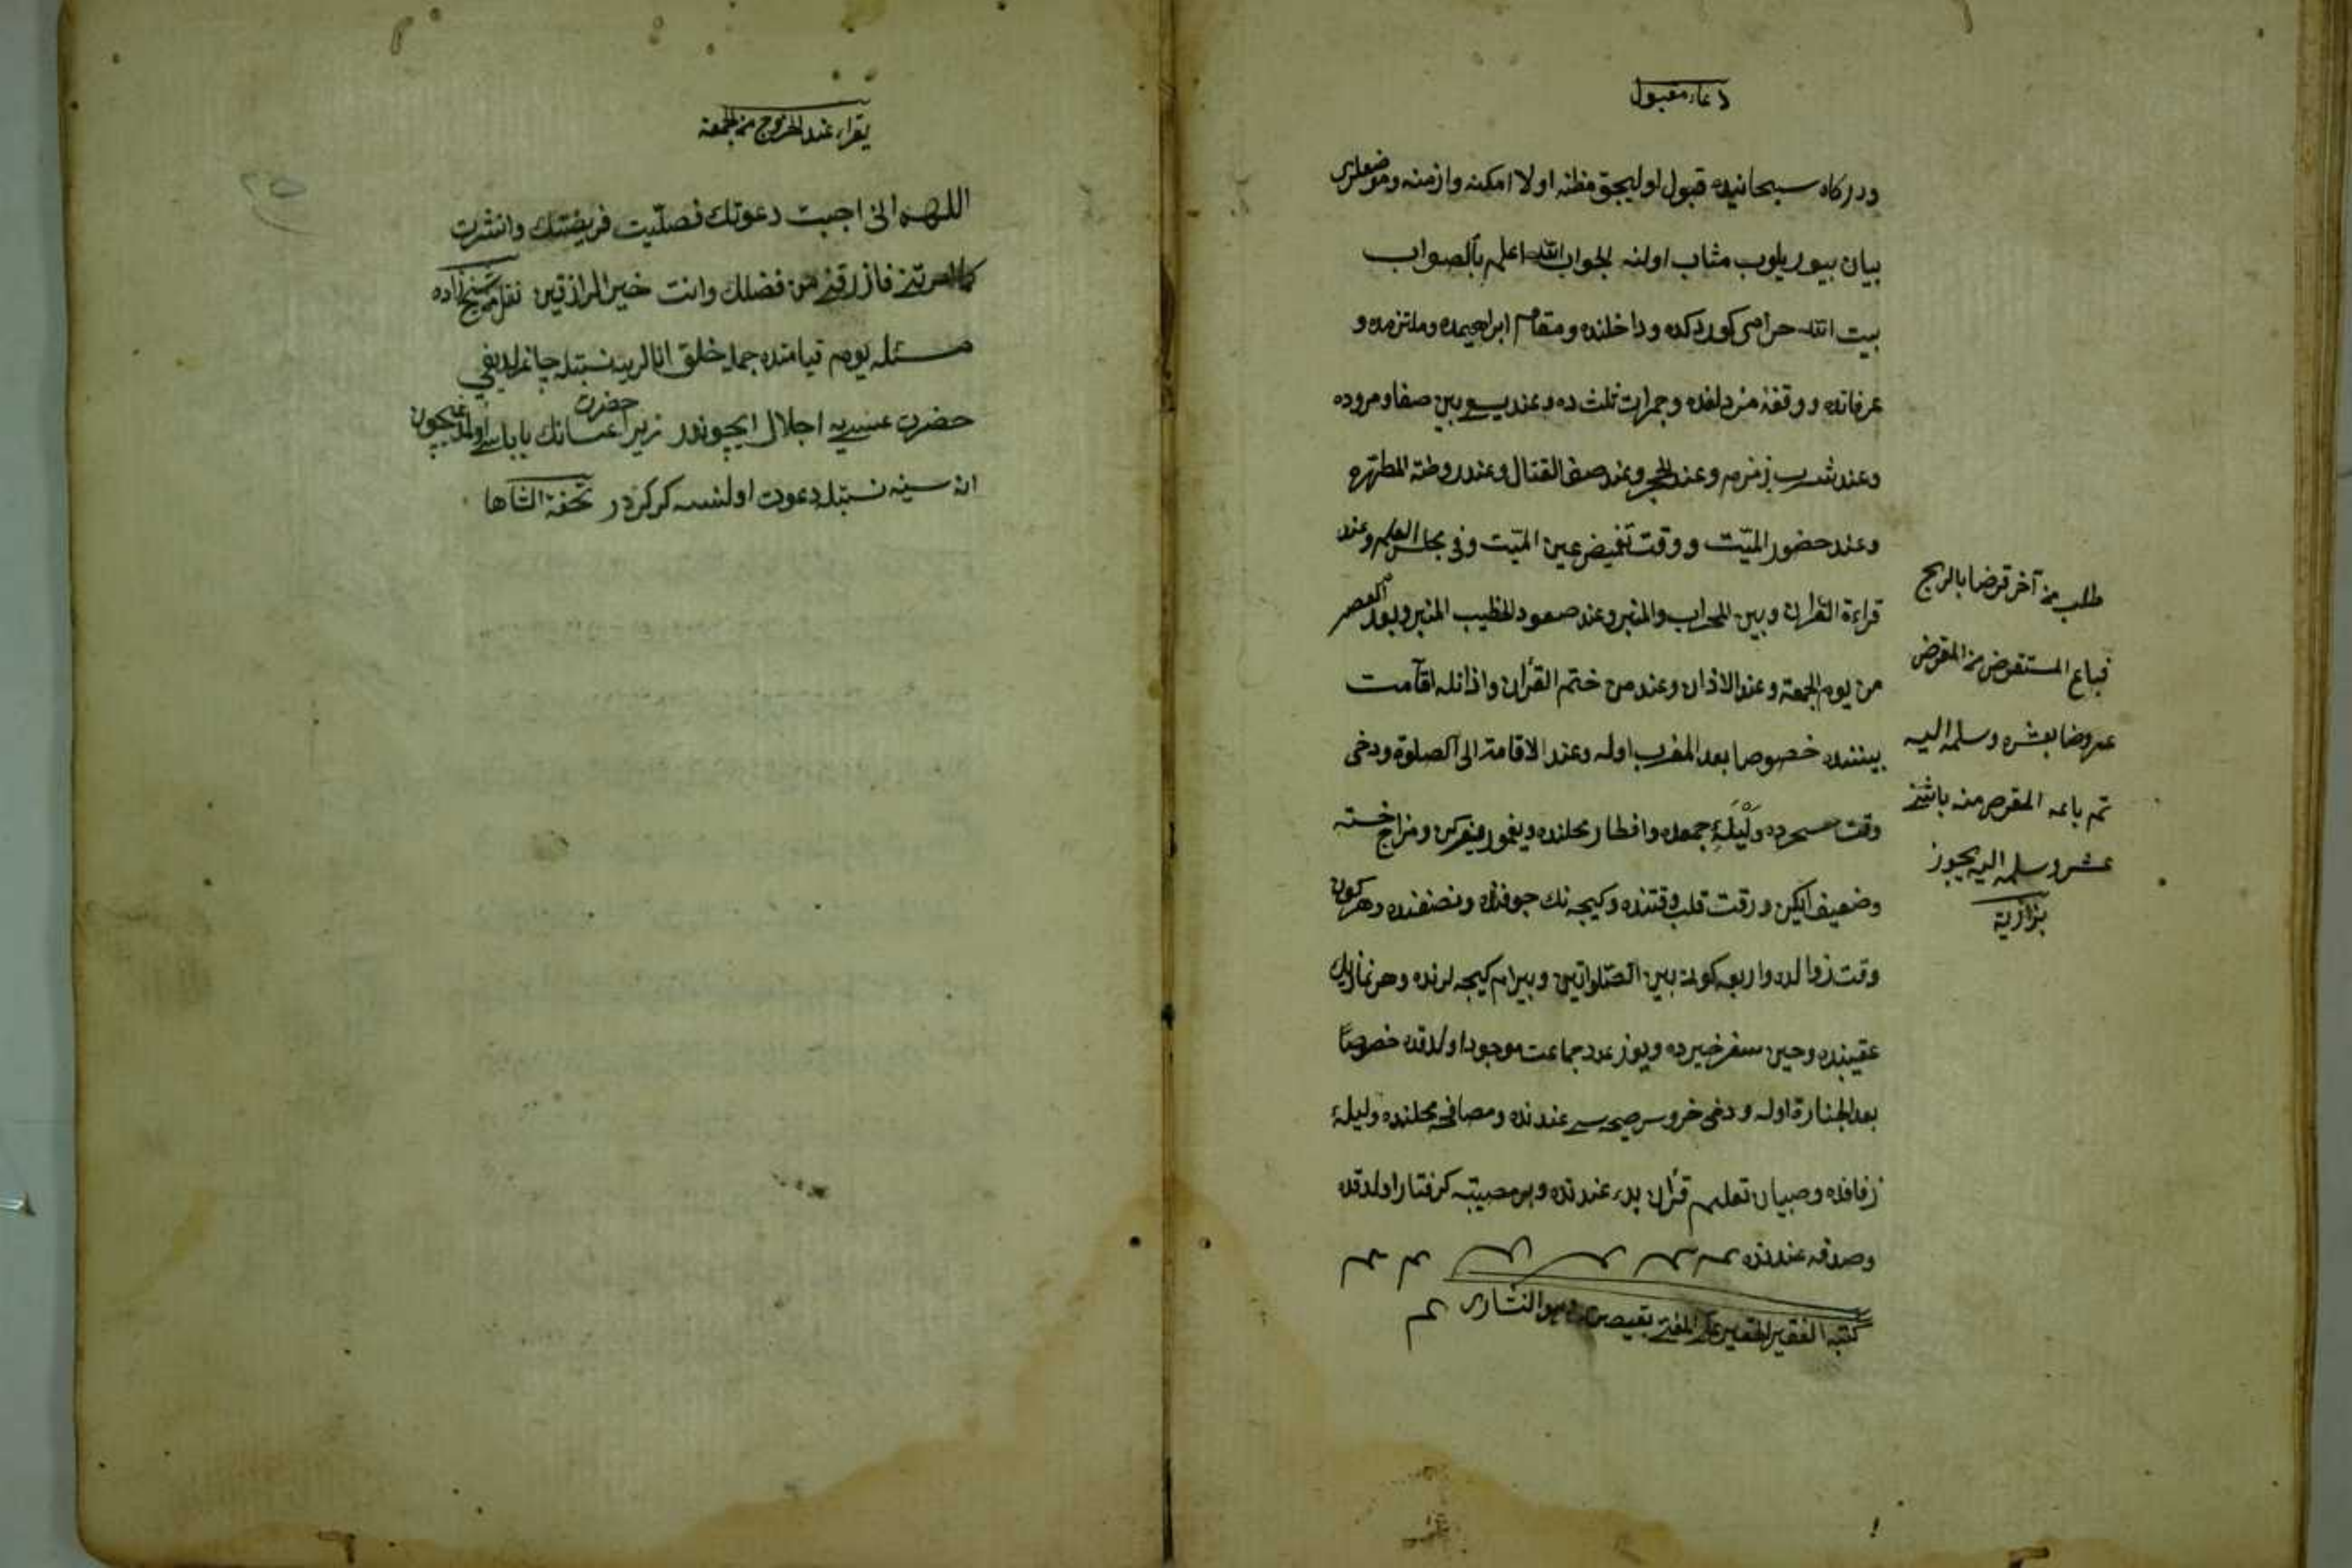 دعاء مقبول
ودركاه سبحانیده قبول اولیجق مظنه اولا امکنه وازمنه وموضعلری
بیان بیوریلوب مثاب اولنه الجواب الله اعلم بالصواب
بیت الله حرامی کوردکده وداخلنده ومقام ابراهیمده وملتزمده و
عرفاتده ووقفۀ مزدلفده وجمرات ثلث ده وعند سعی بین صفا ومروده
وعند شرب زمزم وعند الحجر وعند صف القتال وعند روضة المطهره
وعند حضور المیّت ووقت تغمیض عین المیّت وفی مجلس العلم وعند
قراءة القرآن وبین المحراب والمنبر وعند صعود الخطیب المنبر وبعد العصر
من یوم الجمعة وعند الاذان وعند من ختم القرآن واذانله اقامت
بیننده خصوصا بعد المغرب اوله وعند الاقامة الی الصلوة ودخی
وقت سحرده ولیلۀ جمعده وافطار محلنده ویغمور یغرکن ومزاج خسته
وضعیف ایکن ورقت قلب وقتنده وکیجه نك جوفنده ونصفنده وهر کون
وقت زوالده واربعه کونی بین الصلواتین وبیرام کیجه لرنده وهر نمازك
عقیبنده وحین سفر خیرده ویوز عدد جماعت موجود اولدقده خصوصاً
بعد الجنازة اوله ودخی خروس صیحه سی عندنده ومصافحه محلنده ولیلۀ
زفافده وصبیان تعلیم قرآن بدء عندنده وبر مصیبته کرفتار اولدقده
وصدقه عندنده
کتبه الفقیر الحقیر علی المفتی بقیصریه
طلب من آخر قرضا بالربح
فباع المستقرض من المقرض
عروضا بعشره وسلمه الیه
ثم باعه المقرض منه باثنی
عشر وسلمه الیه یجوز
بزازیة
یقراء عند الخروج من الجمعة
٢٥
اللهم انی اجبت دعوتك فصلّیت فریضتك وانتشرت
کما امرتنی فارزقنی من فضلك وانت خیر الرازقین نقل من شیخ زاده
مسئله یوم قیامتده جمله خلق انالرینه نسبتله چاغرلدیغی
حضرت عیسی یه اجلال ایچوندر زیرا حضرت عیسانك باباسی اولمدیغیچون
اناسینه نسبتله دعوت اولنسه کرکدر تحفة الشاها